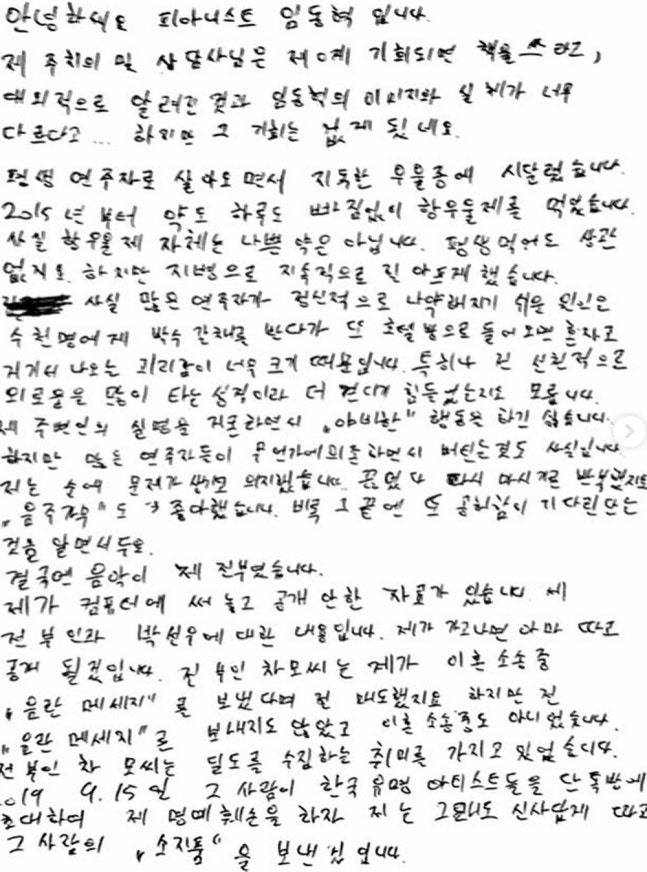 안녕하세요 피아니스트 임동혁 입니다.
제 주치의 및 상담사님은 제게 기회되면 책을 쓰라고,
대외적으로 알려진 것과 임동혁의 이미지와 실제가 너무
다르다고... 하지만 그 기회는 없게 됐네요.
평생 연주자로 살아오면서 지독한 우울증에 시달렸습니다.
2015년부터 약도 하루도 빠짐없이 항우울제를 먹었습니다.
사실 항우울제 자체는 나쁜 약은 아닙니다. 평생먹어도 상관
없지요. 하지만 지병으로 지속적으로 전 아프게 했습니다.
사실 많은 연주자가 정신적으로 나약해지기 쉬운 원인은
수천명에게 박수 갈채를 받다가 또 호텔방으로 들어오면 혼자고
거기서 나오는 괴리감이 너무 크기 때문입니다. 특히나 전 선천적으로
외로움을 많이 타는 성격이라 더 견디기 힘들었는지도 모릅니다.
제 주변인의 실명을 거론하면서 „야비한" 행동은 하긴 싫습니다.
하지만 많은 연주자들이 무언가에 의존하면서 버티는것도 사실입니다
저는 술에 문제가 생겨 의지했습니다. 끊었다 다시 마시기를 반복했지요
„음주가무"도 좋아했습니다. 비록 그 끝엔 또 공허함이 기다린다는
것을 알면서두요.
결국엔 음악이 제 전부였습니다.
제가 컴퓨터에 써 놓고 공개 안한 자료가 있습니다. 제
전 부인과 에 대한 내용입니다. 제가 가고나면 아마 따로
공개 될것입니다. 전 부인 차모씨는 제가 이혼 소송중
„음란 메세지"를 보냈다며 절 매도했지요 하지만 전
„음란 메세지"를 보내지도 않았고 이혼 소송중도 아니었습니다.
전부인 차 모씨는 딜도를 수집하는 취미를 가지고 있었습니다.
2019 9.15일 그 사람이 한국 유명 아티스트들을 단톡방에
초대하여 제 명예훼손을 하자 저는 그때도 신사답게 따로
그 사람의 „소지품"을 보낸겁니다.